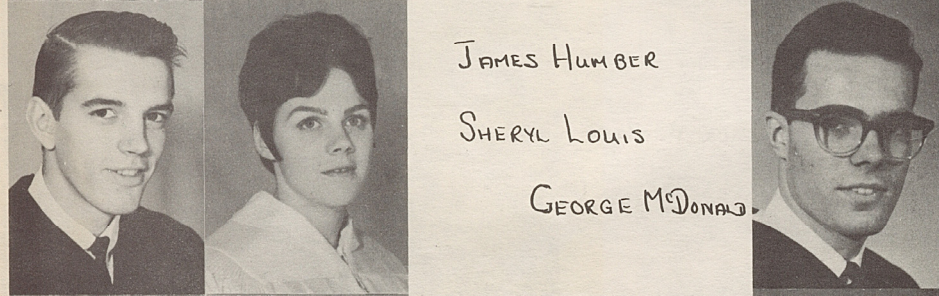 JAMES HUMBER
SHERYL LOUIS
GEORGE McDONALD